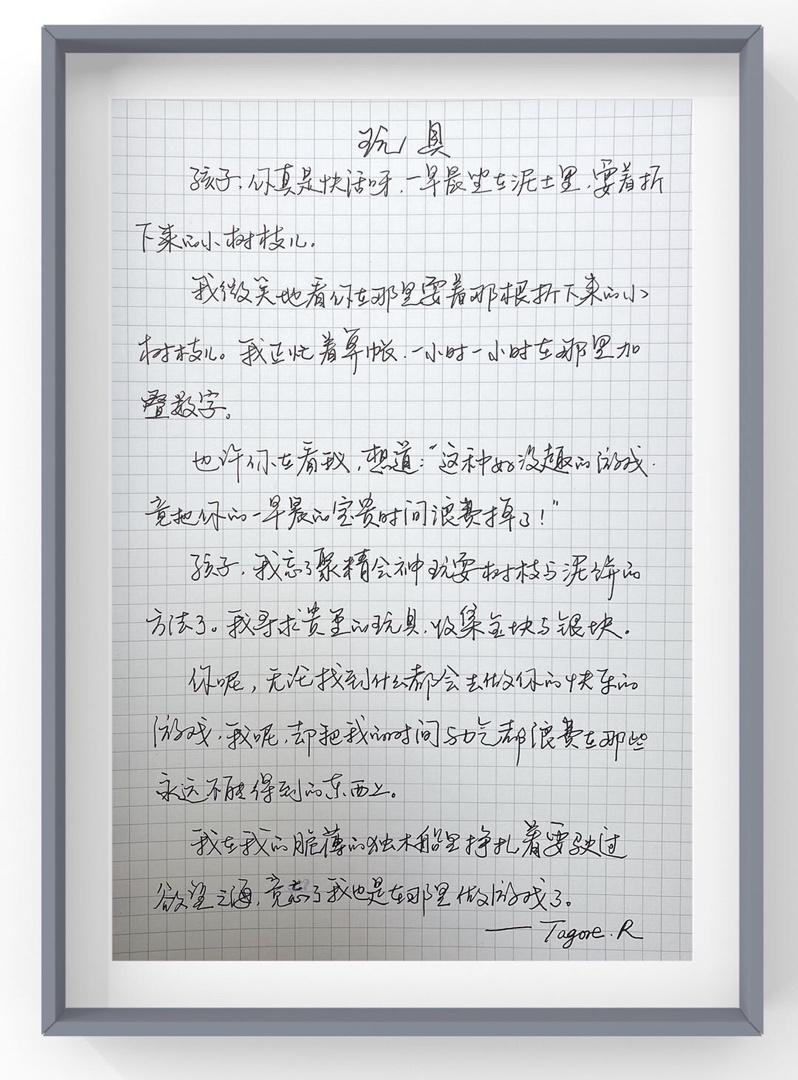 玩具
孩子,你真是快活呀,一早晨坐在泥土里,耍着折
下来的小树枝儿.
我微笑地看你在那里耍着那根折下来的小
树枝儿。我正忙着算帐,一小时一小时在那里加
叠数字。
也许你在看我,想道:“这种好没趣的游戏.
竟把你的一早晨的宝贵时间浪费掉了!”
孩子,我忘了聚精会神玩耍树枝与泥饼的
方法了。我寻求贵重的玩具,收集金块与银块.
你呢,无论找到什么都会去做你的快乐的
游戏,我呢,却把我的时间与力气都浪费在那些
永远不能得到的东西上。
我在我的脆薄的独木船里挣扎着要驶过
欲望之海,竟忘了我也是在那里做游戏了。
—— Tagore.R